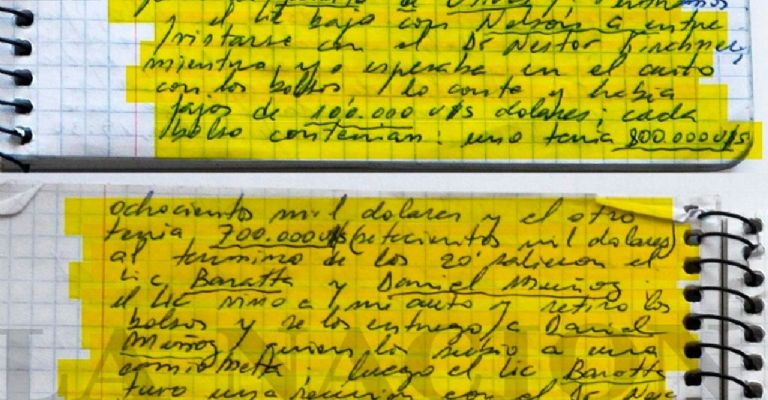 de Olivos
y el Lic bajo con Nelson a entre
vistarse con el Dr Nestor Kirchner,
mientras yo esperaba en el auto
con los bolsos, lo conte y habia
fajos de 100.000 U$S dolares; cada
bolso contenian: uno tenia 800.000 U$S
ochocientos mil dolares y el otro
tenia 700.000 U$S (setecientos mil dolares)
al termino de los 20' salieron el
Lic Baratta y Daniel Muñoz.
el Lic vino a mi auto y retiro los
bolsos y se los entrego a Daniel
Muñoz, quien los subio a una
camioneta; luego el Lic Baratta
tuvo una reunion con el Dr
LA NACION